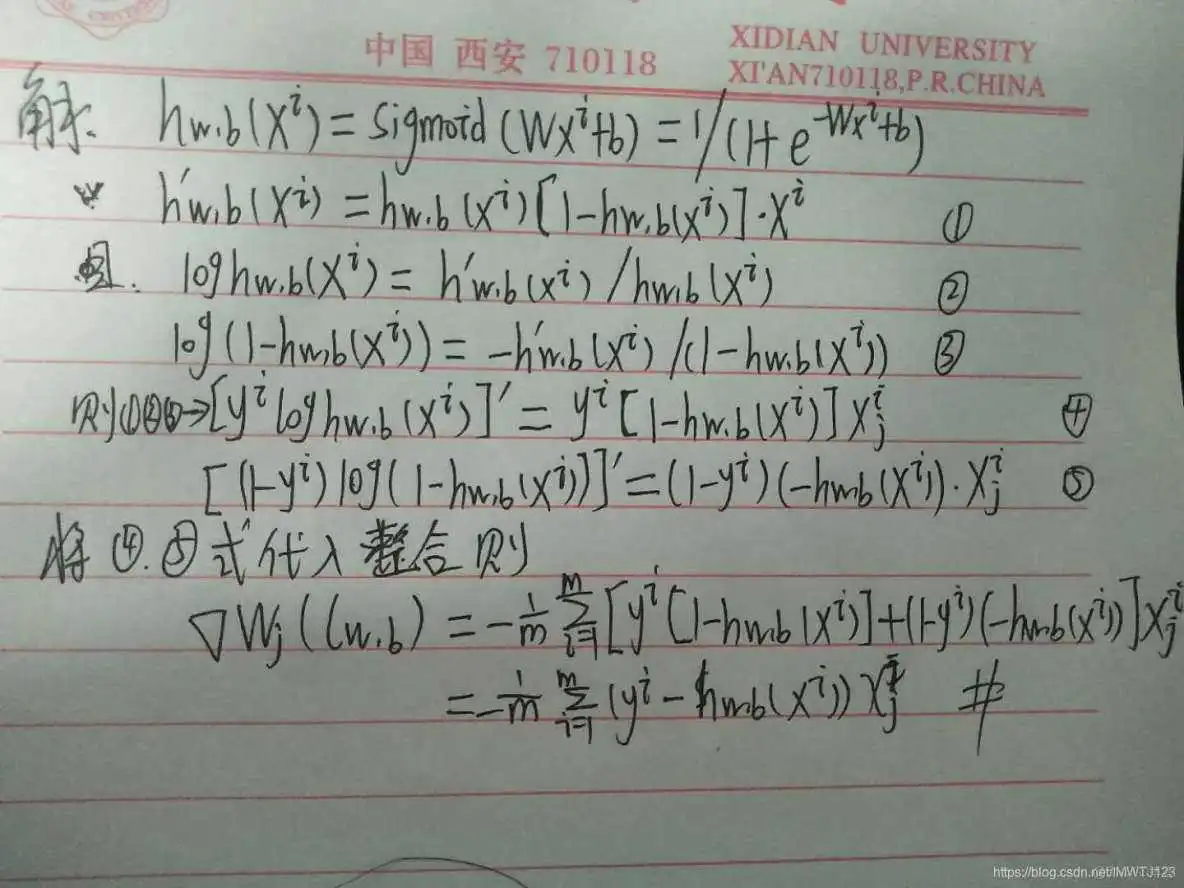 中国 西安 710118
XIDIAN UNIVERSITY
XI'AN710118,P.R.CHINA
解: h_{w.b}(X^i) = Sigmoid (Wx^i+b) = 1/(1+e^{-Wx^i+b})
h'_{w.b}(X^i) = h_{w.b}(x^i)[1-h_{w.b}(x^i)]·X^i ①
且. log h_{w.b}(X^i) = h'_{w.b}(x^i) / h_{w.b}(x^i) ②
log(1-h_{w.b}(X^i)) = -h'_{w.b}(x^i) /(1-h_{w.b}(X^i)) ③
则①②③→[y^i log h_{w.b}(x^i)]' = y^i [1-h_{w.b}(X^i)] X_j^i ④
[(1-y^i) log(1-h_{w.b}(X^i))]' = (1-y^i)(-h_{w.b}(X^i))·X_j^i ⑤
将 ④.⑤ 式代入整合 则
▽W_j((w.b) = -\frac{1}{m} \sum_{i=1}^{m} [y^i [1-h_{w.b}(X^i)]+(1-y^i)(-h_{w.b}(x^i))]X_j^i
= -\frac{1}{m} \sum_{i=1}^{m} (y^i - h_{w.b}(X^i)) X_j^i #
https://blog.csdn.net/MWTJ123